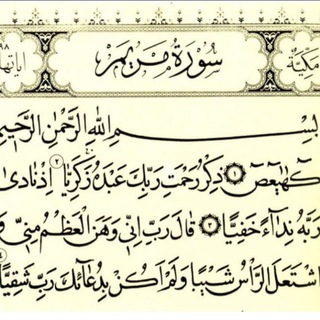 مكية سورة مريم آياتها ٩٨
بِسْمِ اللَّهِ الرَّحْمَٰنِ الرَّحِيمِ
كهيعص ١ ذِكْرُ رَحْمَتِ رَبِّكَ عَبْدَهُ زَكَرِيَّا ٢ إِذْ نَادَىٰ
رَبَّهُ نِدَاءً خَفِيًّا ٣ قَالَ رَبِّ إِنِّي وَهَنَ الْعَظْمُ مِنِّي وَ
اشْتَعَلَ الرَّأْسُ شَيْبًا وَلَمْ أَكُنْ بِدُعَائِكَ رَبِّ شَقِيًّا ٤